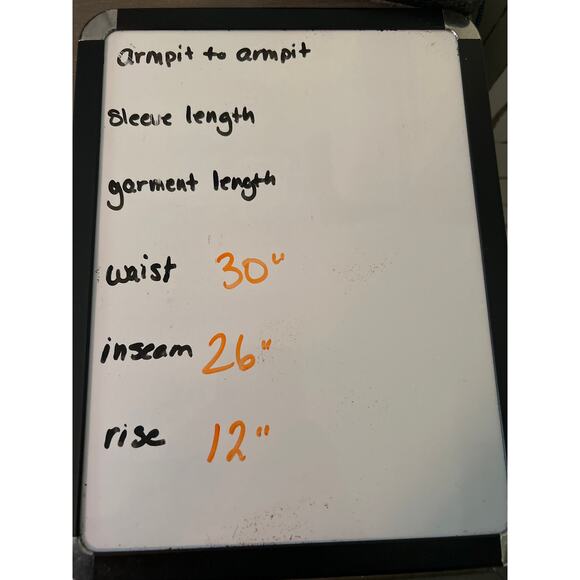 armpit to armpit
sleeve length
garment length
waist 30"
inseam 26"
rise 12"